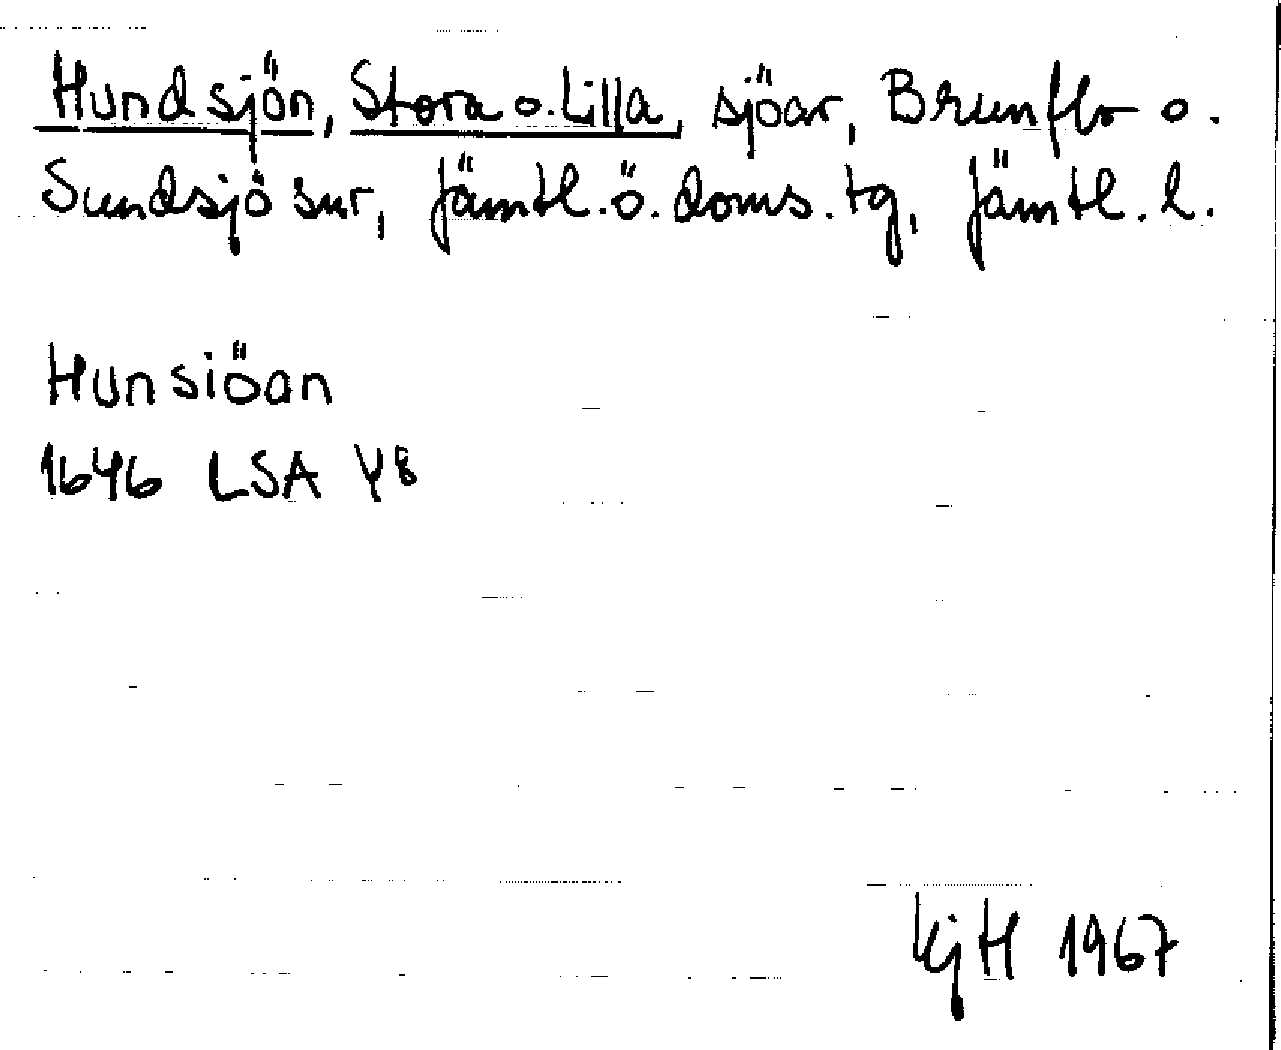 Hundsjön, Stora o. Lilla, sjöar, Brunflo o.
Sundsjö snr, Jämtl. ö. doms. tg, Jämtl. l.
Hunsiöan
1646 LSA Y8
KjH 1967